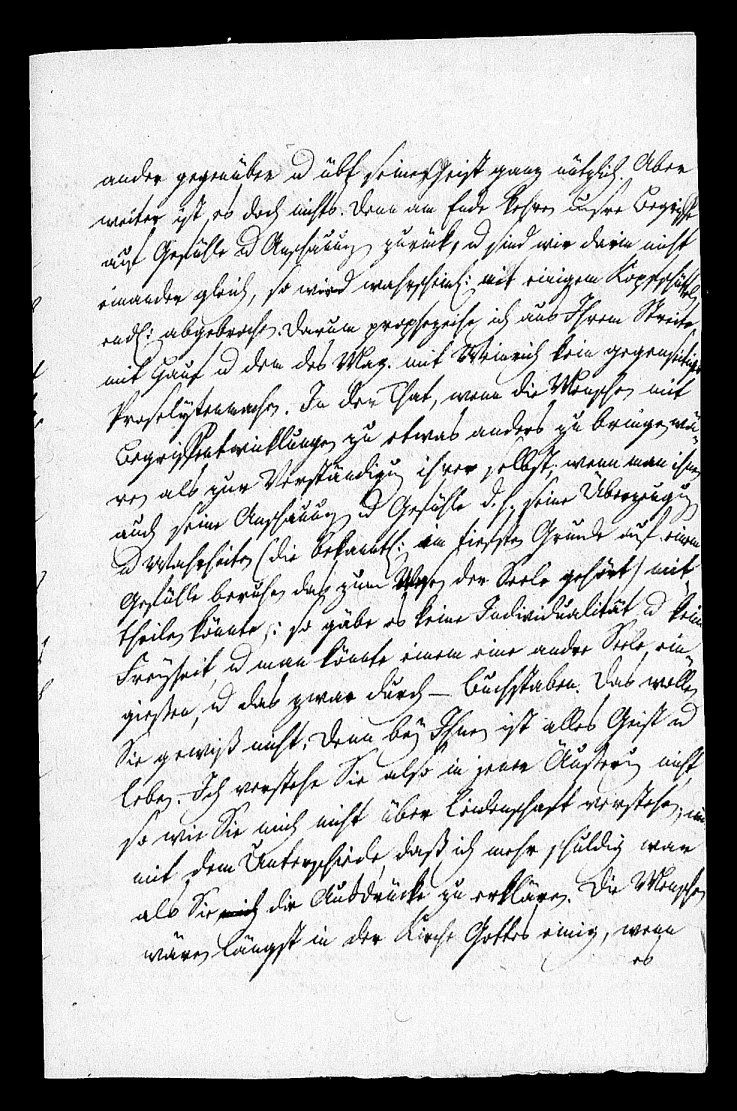 ander gegenüber u übt seinen Geist ganz nützlich. Aber
weiter ist es doch nichts. Denn am Ende kehren unsre Begriffe
auf Gefühle u Anschauung zurück, u sind wir darin nicht
einander gleich, so wird wahrscheinl: mit einigem Kopfschütteln
endl: abgebrochen. Darum prophezeihe ich aus Ihrem Streite
mit Hauf u dem des Mag. mit Weinrich kein gegenseitiges
Proselytenmachen. In der That, wenn die Menschen mit
Begriffentwicklungen zu etwas anders zu bringen wä
ren als zur Verständigung ihrer selbst, wenn man ihnen
auch seine Anschauung u Gefühle d. h. seine Überzeugung
u Wahrheiten (die bekanntl: im tiefsten Grunde auf einem
Gefühle beruhen das zum Wesen der Seele gehört) mit
theilen könnte: so gäbe es keine Individualität u keine
Freyheit, u man könnte einem eine andre Seele ein
gießen, u das zwar durch – Buchstaben. Das wollen
Sie gewiß nicht. Denn bey Ihnen ist alles Geist u
Leben. Ich verstehe Sie also in jener Äußerung nicht
so wie Sie mich nicht über Leidenschaft verstehen, nur
mit dem Unterschiede, daß ich mehr schuldig war
als Sie die Ausdrücke zu erklären. Die Menschen
wären längst in der Kirche Gottes einig, wenn
es